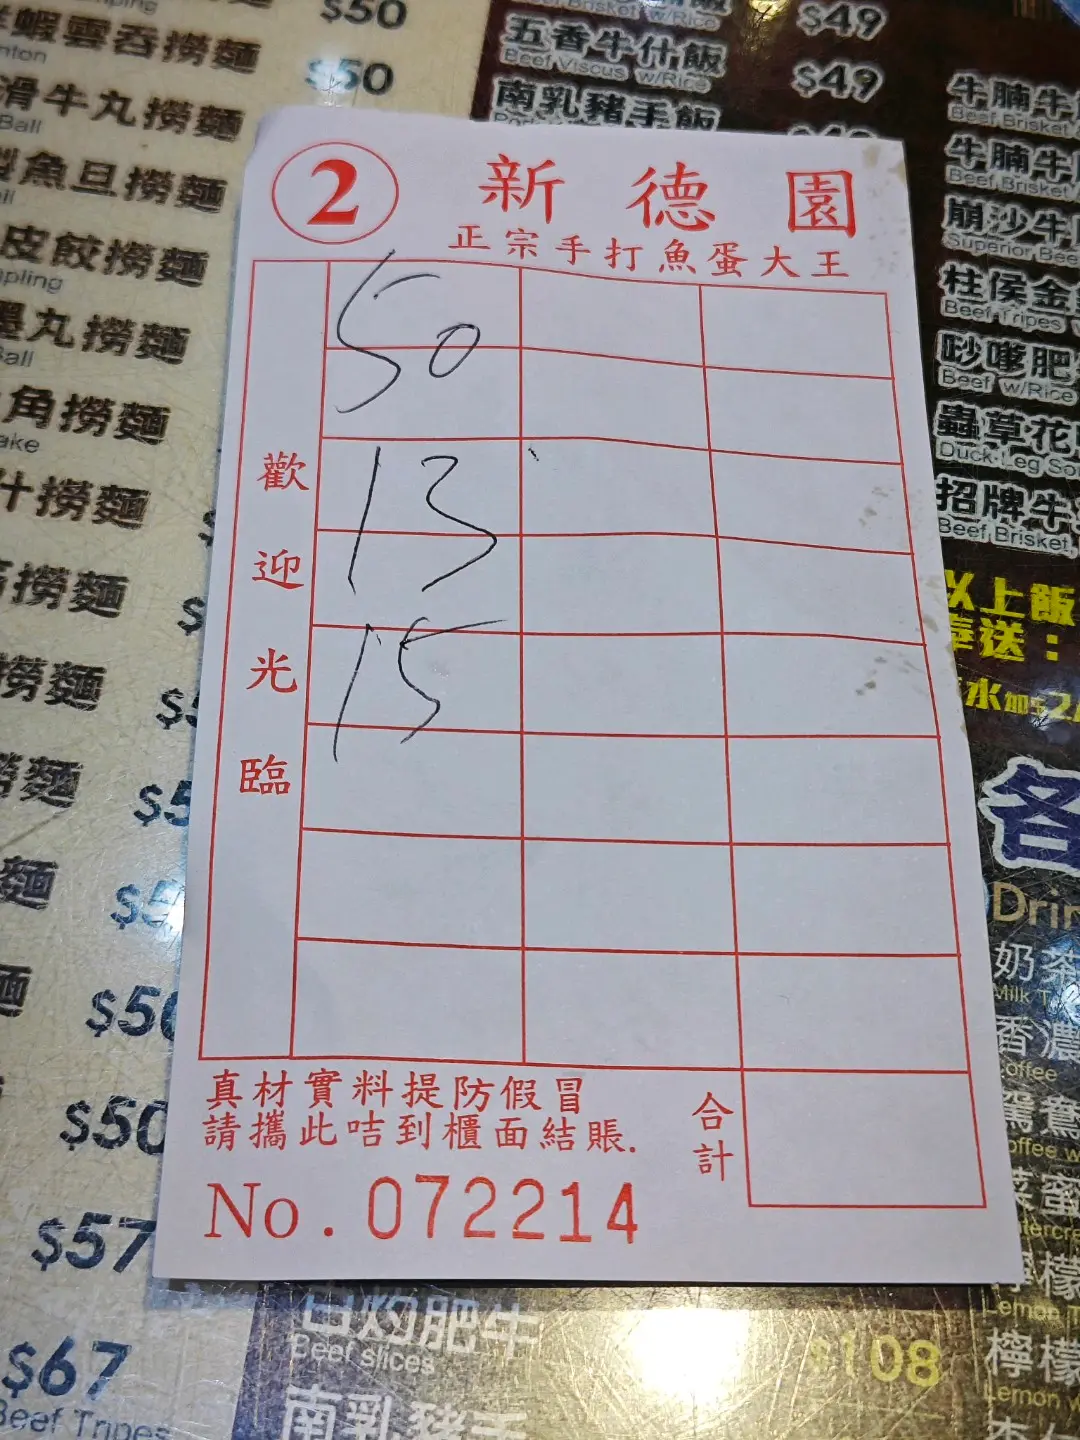 $50
$49
蝦雲吞撈麵
五香牛什飯
Beef Viscus w/Rice
$50
$49
滑牛丸撈麵
Ball
南乳豬手飯
魚旦撈麵
皮餃撈麵
丸撈麵
Ball
角撈麵
什撈麵
撈麵
撈麵
Beef Brisket
Beef Brisket
崩沙牛
柱侯金
Beef Tripes w
吵嗲肥
Beef w/Rice
蟲草花
招牌牛
Beef Brisket,
以上飯
奉送:
②
新德園
正宗手打魚蛋大王
歡迎光臨
50
13
15
真材實料提防假冒
請攜此咭到櫃面結賬.
合計
No. 072214
各
Drin
奶茶
Milk T
香濃
offee
鴛鴦
offee w
檸檬
Lemon T
檸檬
Lemon w
$50
$57
$67
Beef Tripes
白灼肥牛
Beef slices
$108
南乳豬手